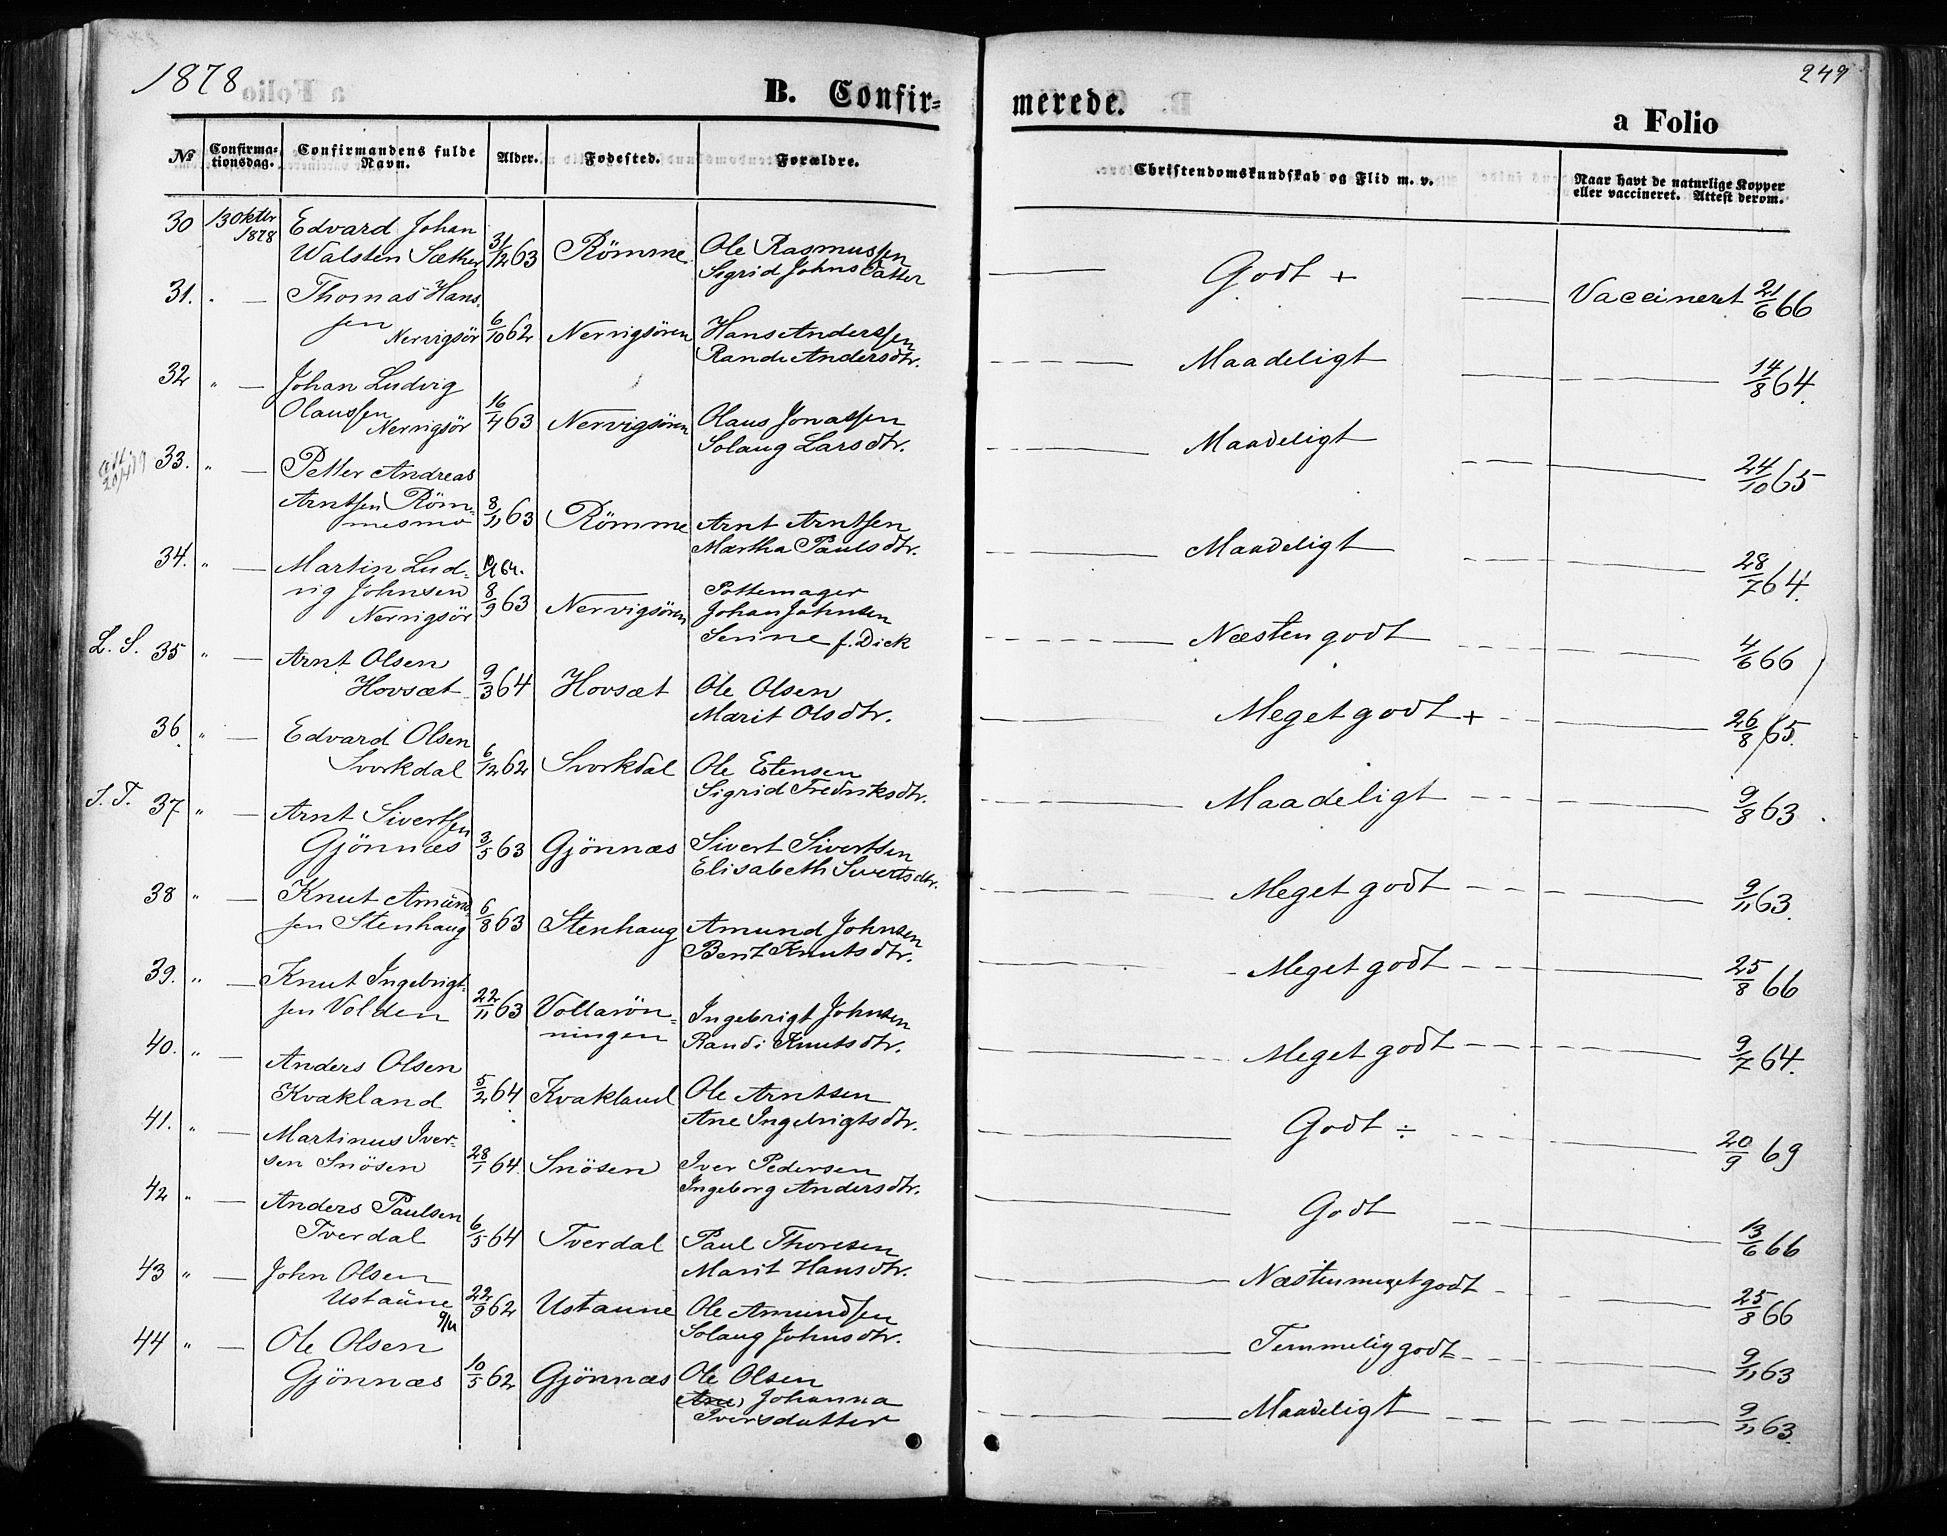 1878
B. Confir=
merede.
249
a Folio
No
Confirma-
tionsdag.
Confirmandens fulde
Navn.
Alder.
Fødested.
Forældre.
Christendomskundskab og Flid m. v.
Naar havt de naturlige Kopper
eller vaccineret. Attest derom.
30 13 Oktbr Edvard Johan
1878 Walsten Sæther 31/12 63 Römme Ole Rasmussen
Sigrid Johns Datter
Godt +
Vaccineret 21/6 66
31. " Thomas Hans
sen
Nervigsör 6/10 62 Nervigsören Hans Anderssen
Randi Andersdtr.
Maadeligt
14/8 64.
32 " Johan Ludvig
Olaussen
Nervigsör 16/4 63 Nervigsören Olaus Jonassen
Solaug Larsdtr.
Maadeligt
24/10 65
33. " Petter Andreas
Arntsen Röm=
mesmo 8/11 63 Römme Arnt Arntsen
Martha Paulsdtr.
Maadeligt
28/7 64.
34. " Martin Lud=
vig Johnsen
Nervigsör 8/9 63 Nervigsören Pottemager
Johan Johnsen
Serine f. Dick
Næsten godt
4/6 66
L. S. 35 " Arnt Olsen
Hovsæt 9/3 64 Hovsæt Ole Olsen
Marit Olsdtr.
Meget godt +
26/8 65.
36. " Edvard Olsen
Svorkdal 6/12 62 Svorkdal Ole Estensen
Sigrid Fredriksdtr.
Maadeligt
9/8 63
S. T. 37 " Arnt Sivertsen
Gjönnæs 3/5 63 Gjönnæs Sivert Sivertsen
Elisabeth Sivertsdtr.
Meget godt
9/11 63.
38 " Knut Amund
sen Stenhaug 6/8 63 Stenhaug Amund Johnsen
Berit Knutsdtr.
Meget godt
25/8 66
39. " Knut Ingebrigt=
sen Volden 22/11 63 Voldarön=
ningen
Ingebrigt Johnsen
Randi Knutsdtr.
Meget godt
9/7 64.
40. " Anders Olsen
Kvakland 5/2 64 Kvakland Ole Arntsen
Ane Ingebrigtsdtr.
Godt ÷
20/9 69
41. " Martinus Iver-
sen Snösen 28/1 64. Snösen Iver Pedersen
Ingeborg Andersdtr.
Godt
13/6 66
42 " Anders Paulsen
Tverdal 6/5 64 Tverdal Paul Thoresen
Marit Hansdtr.
Næsten meget godt
25/8 66
43 " John Olsen
Ustaune 22/9 62 Ustaune Ole Amundsen
Solaug Johnsdtr.
Temmelig godt
9/11 63
44 " Ole Olsen
Gjönnæs 10/5 62 Gjönnæs Ole Olsen
Johanna
Iversdatter
Maadeligt
9/11 63.